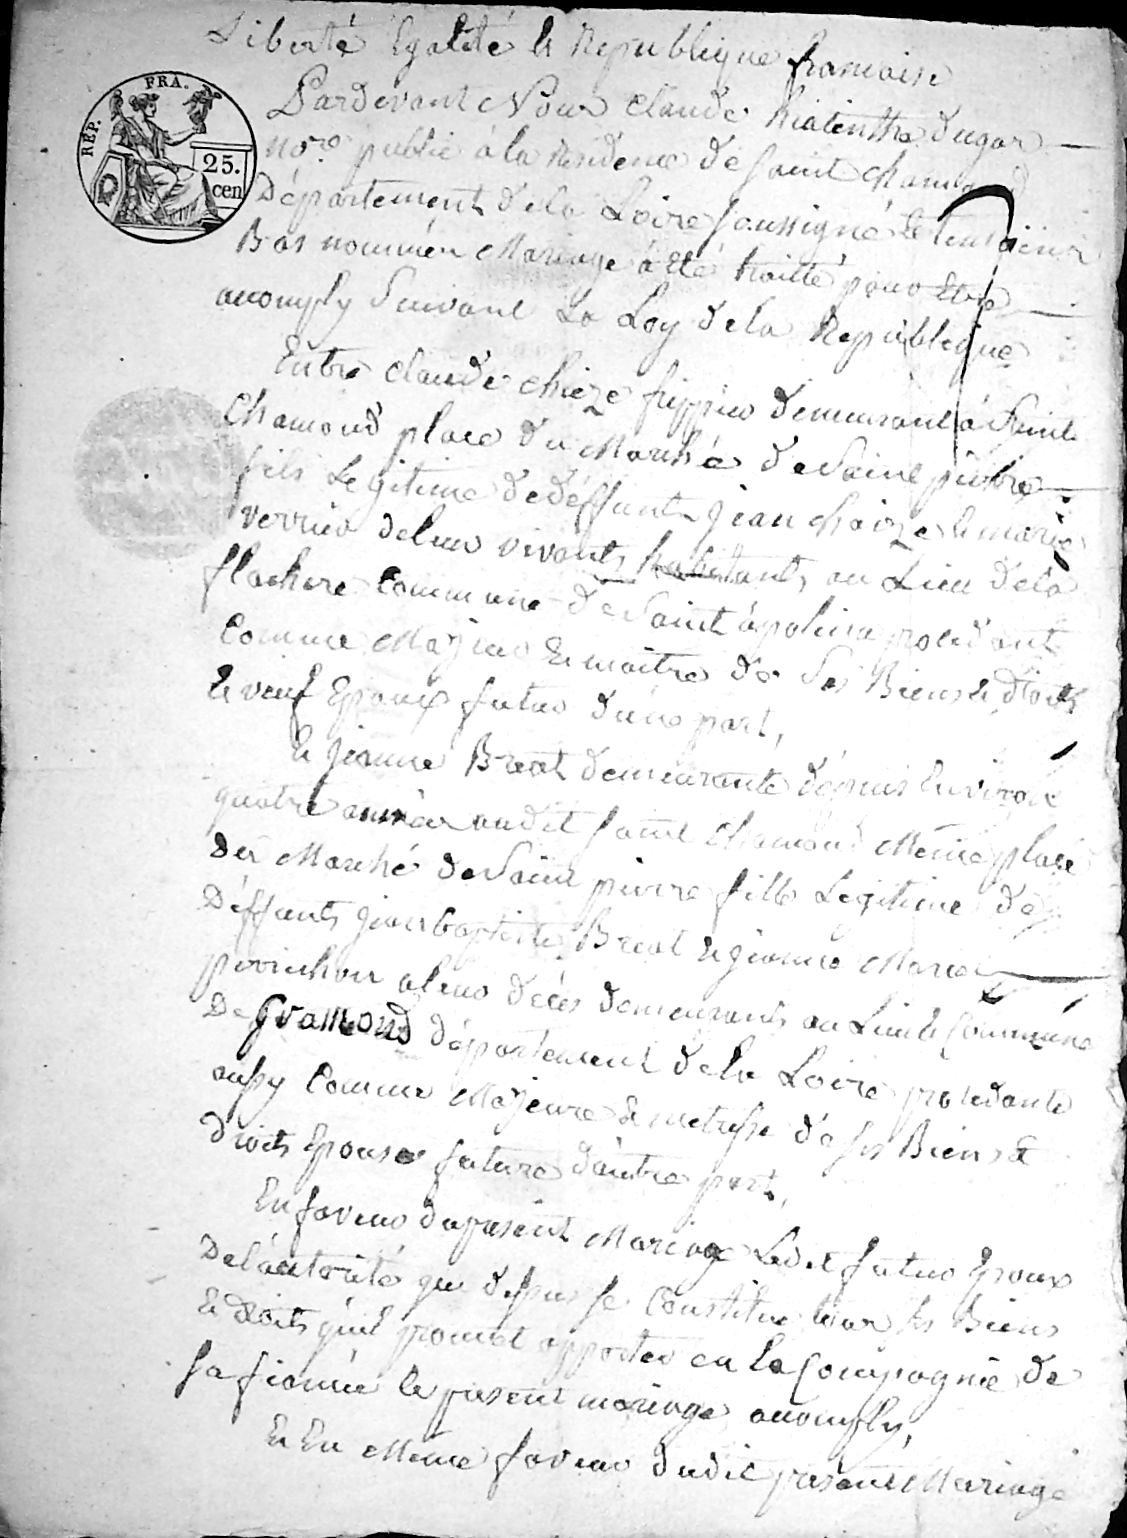 Liberté Egalité le Republique francaise
RÉP. FRA.
25. cen
Pardevant Nous Claude dugas
no.re public à la Residence de Saint chamond
Département dela Loire Soussigné
Bas nommés Mariage à eté traitté pour etre
accomply Suivant La Loy dela Republique
Entre claude chieze frippier demeurant à Saint
Chamond place du Marché de Saint pierre
fils Legitime de deffunt jean chaize
verrier deleur vivants habitants au Lieu dela
flachere Commune de Saint apolina procedant
Comme Majeur & maitre de Ses Biens & droits
le veuf Epoux futur dune part,
& jeanne Breat demeurante depuis Environ
quatre années audit Saint Chamond Même place
du Marché de Saint pierre fille Legitime de
Deffunts jean baptiste Breat & jeanne Marie
perrichon aleur decès demeurants au Lieu & Commune
De Gramond département dela Loire procedante
aussy Comme Majeure & metresse de ses Biens &
droits Epouse future dautre part,
En faveur du present Mariage Ledit futur Epoux
Delautorité que dessus se Constitue tous ses Biens
& droits quil promet apporter en la Compagnie de
sa fiancée le present mariage accomply,
& En Même faveur dudit present Mariage